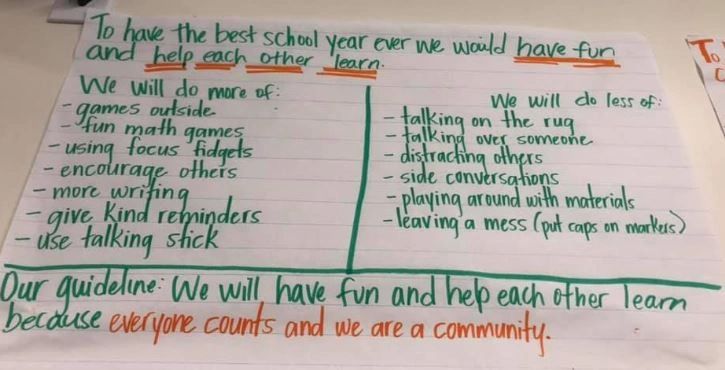 To have the best school year ever we would have fun
and help each other learn.
We will do more of:
- games outside
- fun math games
- using focus fidgets
- encourage others
- more writing
- give kind reminders
- use talking stick
We will do less of:
- talking on the rug
- talking over someone
- distracting others
- side conversations
- playing around with materials
- leaving a mess (put caps on markers)
Our guideline: We will have fun and help each other learn
because everyone counts and we are a community.
To